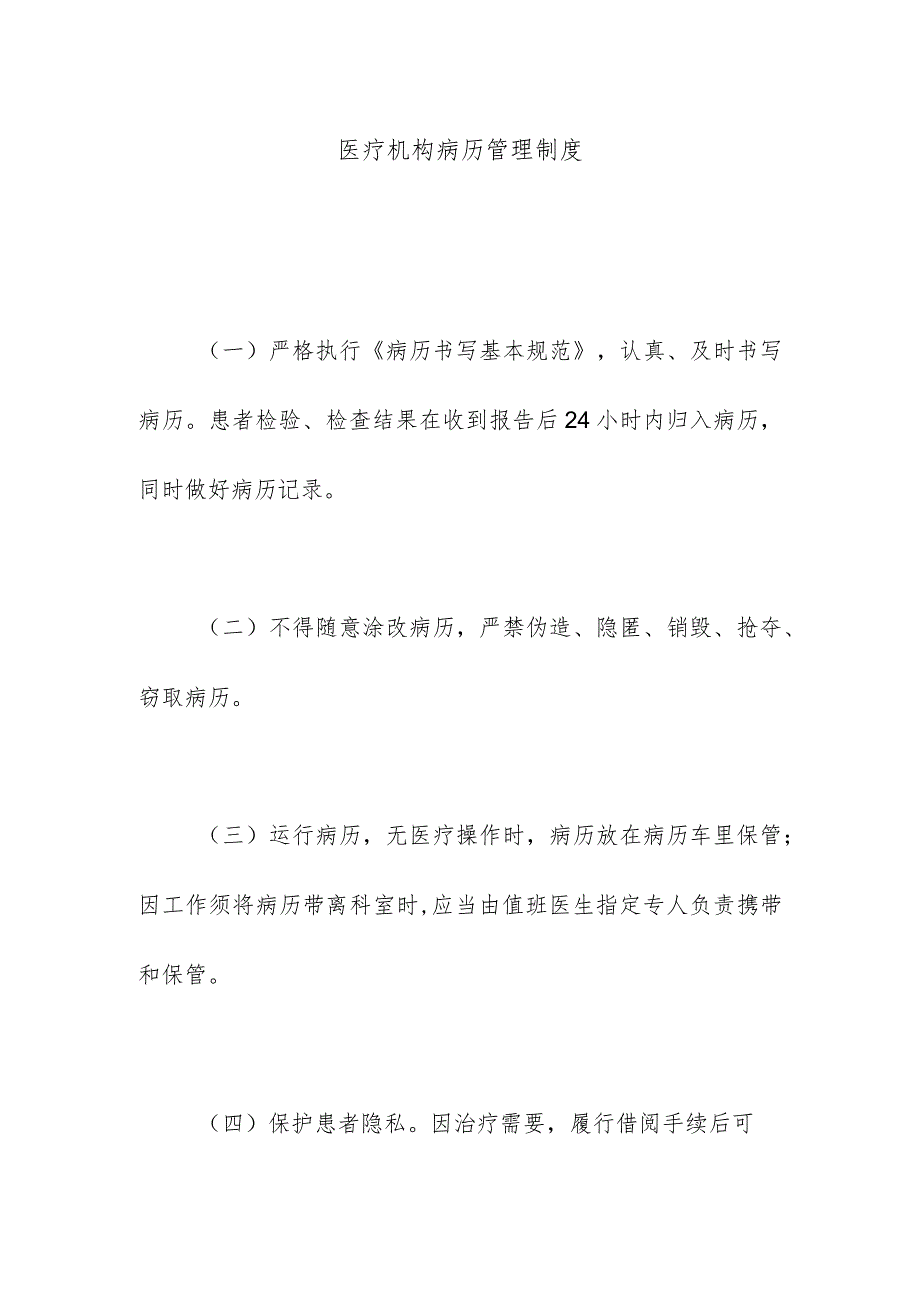 医疗机构病历管理制度
（一）严格执行《病历书写基本规范》，认真、及时书写
病历。患者检验、检查结果在收到报告后24小时内归入病历，
同时做好病历记录。
（二）不得随意涂改病历，严禁伪造、隐匿、销毁、抢夺、
窃取病历。
（三）运行病历，无医疗操作时，病历放在病历车里保管；
因工作须将病历带离科室时,应当由值班医生指定专人负责携带
和保管。
（四）保护患者隐私。因治疗需要，履行借阅手续后可